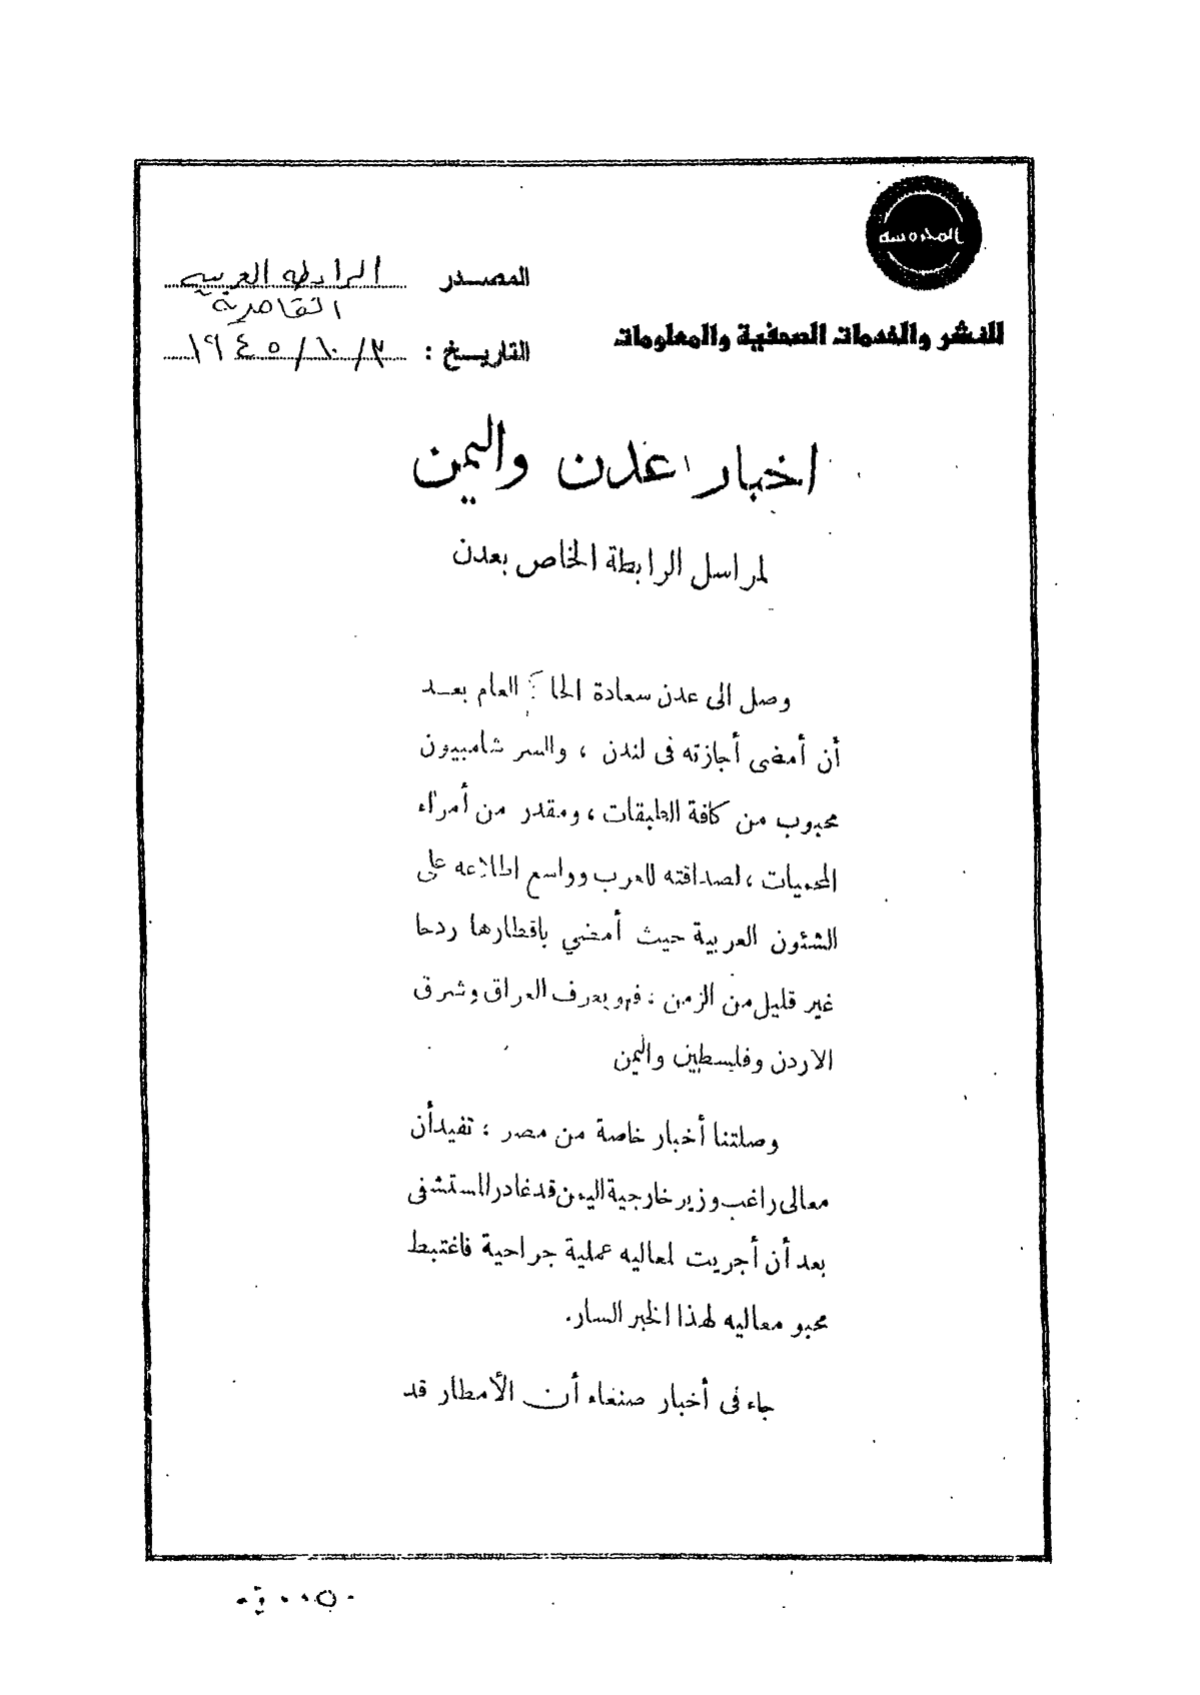 المحروسه
للنشر والخدمات الصحفية والمعلومات
المصدر الرابطه العربيه
القاهرية
التاريخ : ٣/١٠/١٩٤٥
اخبار عدن واليمن
لمراسل الرابطة الخاص بعدن
وصل الى عدن سعادة الحاكم العام بعد
أن أمضى أجازته فى لندن ، والسر شامبيون
محبوب من كافة الطبقات ، ومقدر من أمراء
المحميات ، لصداقته للعرب وواسع اطلاعه على
الشئون العربية حيث أمضي باقطارها ردحا
غير قليل من الزمن : فهو يعرف العراق وشرق
الاردن وفلسطين واليمن
وصلتنا أخبار خاصة من مصر : تفيد أن
معالى راغب وزير خارجية اليمن قد غادر المستشفى
بعد أن أجريت لمعاليه عملية جراحية فاغتبط
محبو معاليه لهذا الخبر السار.
جاء فى أخبار صنعاء أن الأمطار قد